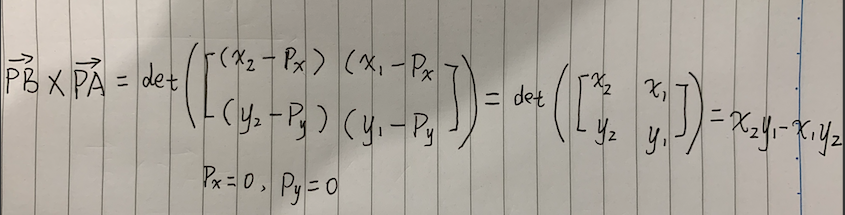 $\overrightarrow{PB} \times \overrightarrow{PA} = \det\left(\begin{bmatrix} (x_2 - P_x) & (x_1 - P_x \\ (y_2 - P_y) & (y_1 - P_y \end{bmatrix}\right) = \det\left(\begin{bmatrix} x_2 & x_1 \\ y_2 & y_1 \end{bmatrix}\right) = x_2 y_1 - x_1 y_2$
$P_x = 0, P_y = 0$